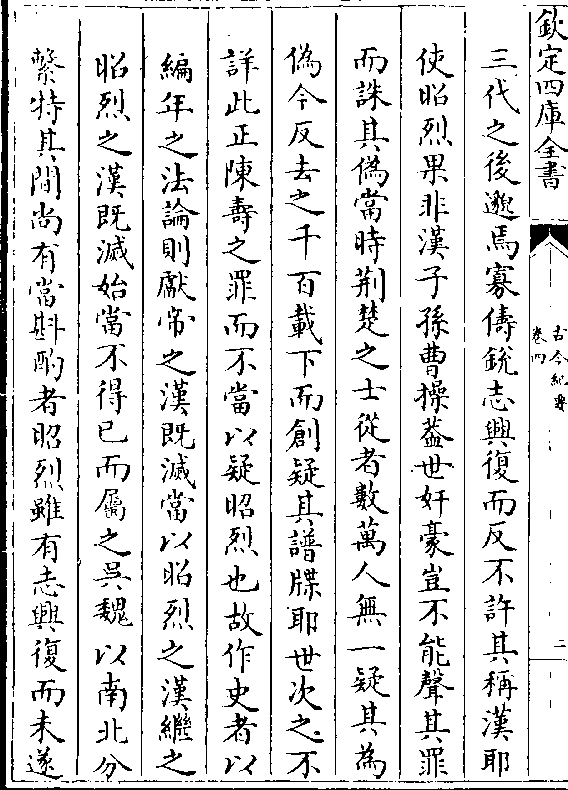 欽定四庫全書
古今紀要
卷四
二
三代之後邈焉寡儔銳志興復而反不許其稱漢耶
使昭烈果非漢子孫曹操蓋世奸豪豈不能聲其罪
而誅其偽當時荆楚之士從者數萬人無一疑其為
偽今反去之千百載下而創疑其譜牒耶世次之不
詳此正陳壽之罪而不當以疑昭烈也故作史者以
編年之法論則獻帝之漢既滅當以昭烈之漢繼之
昭烈之漢既滅始當不得已而屬之吳魏以南北分
繫特其間尚有當斟酌者昭烈雖有志興復而未遂